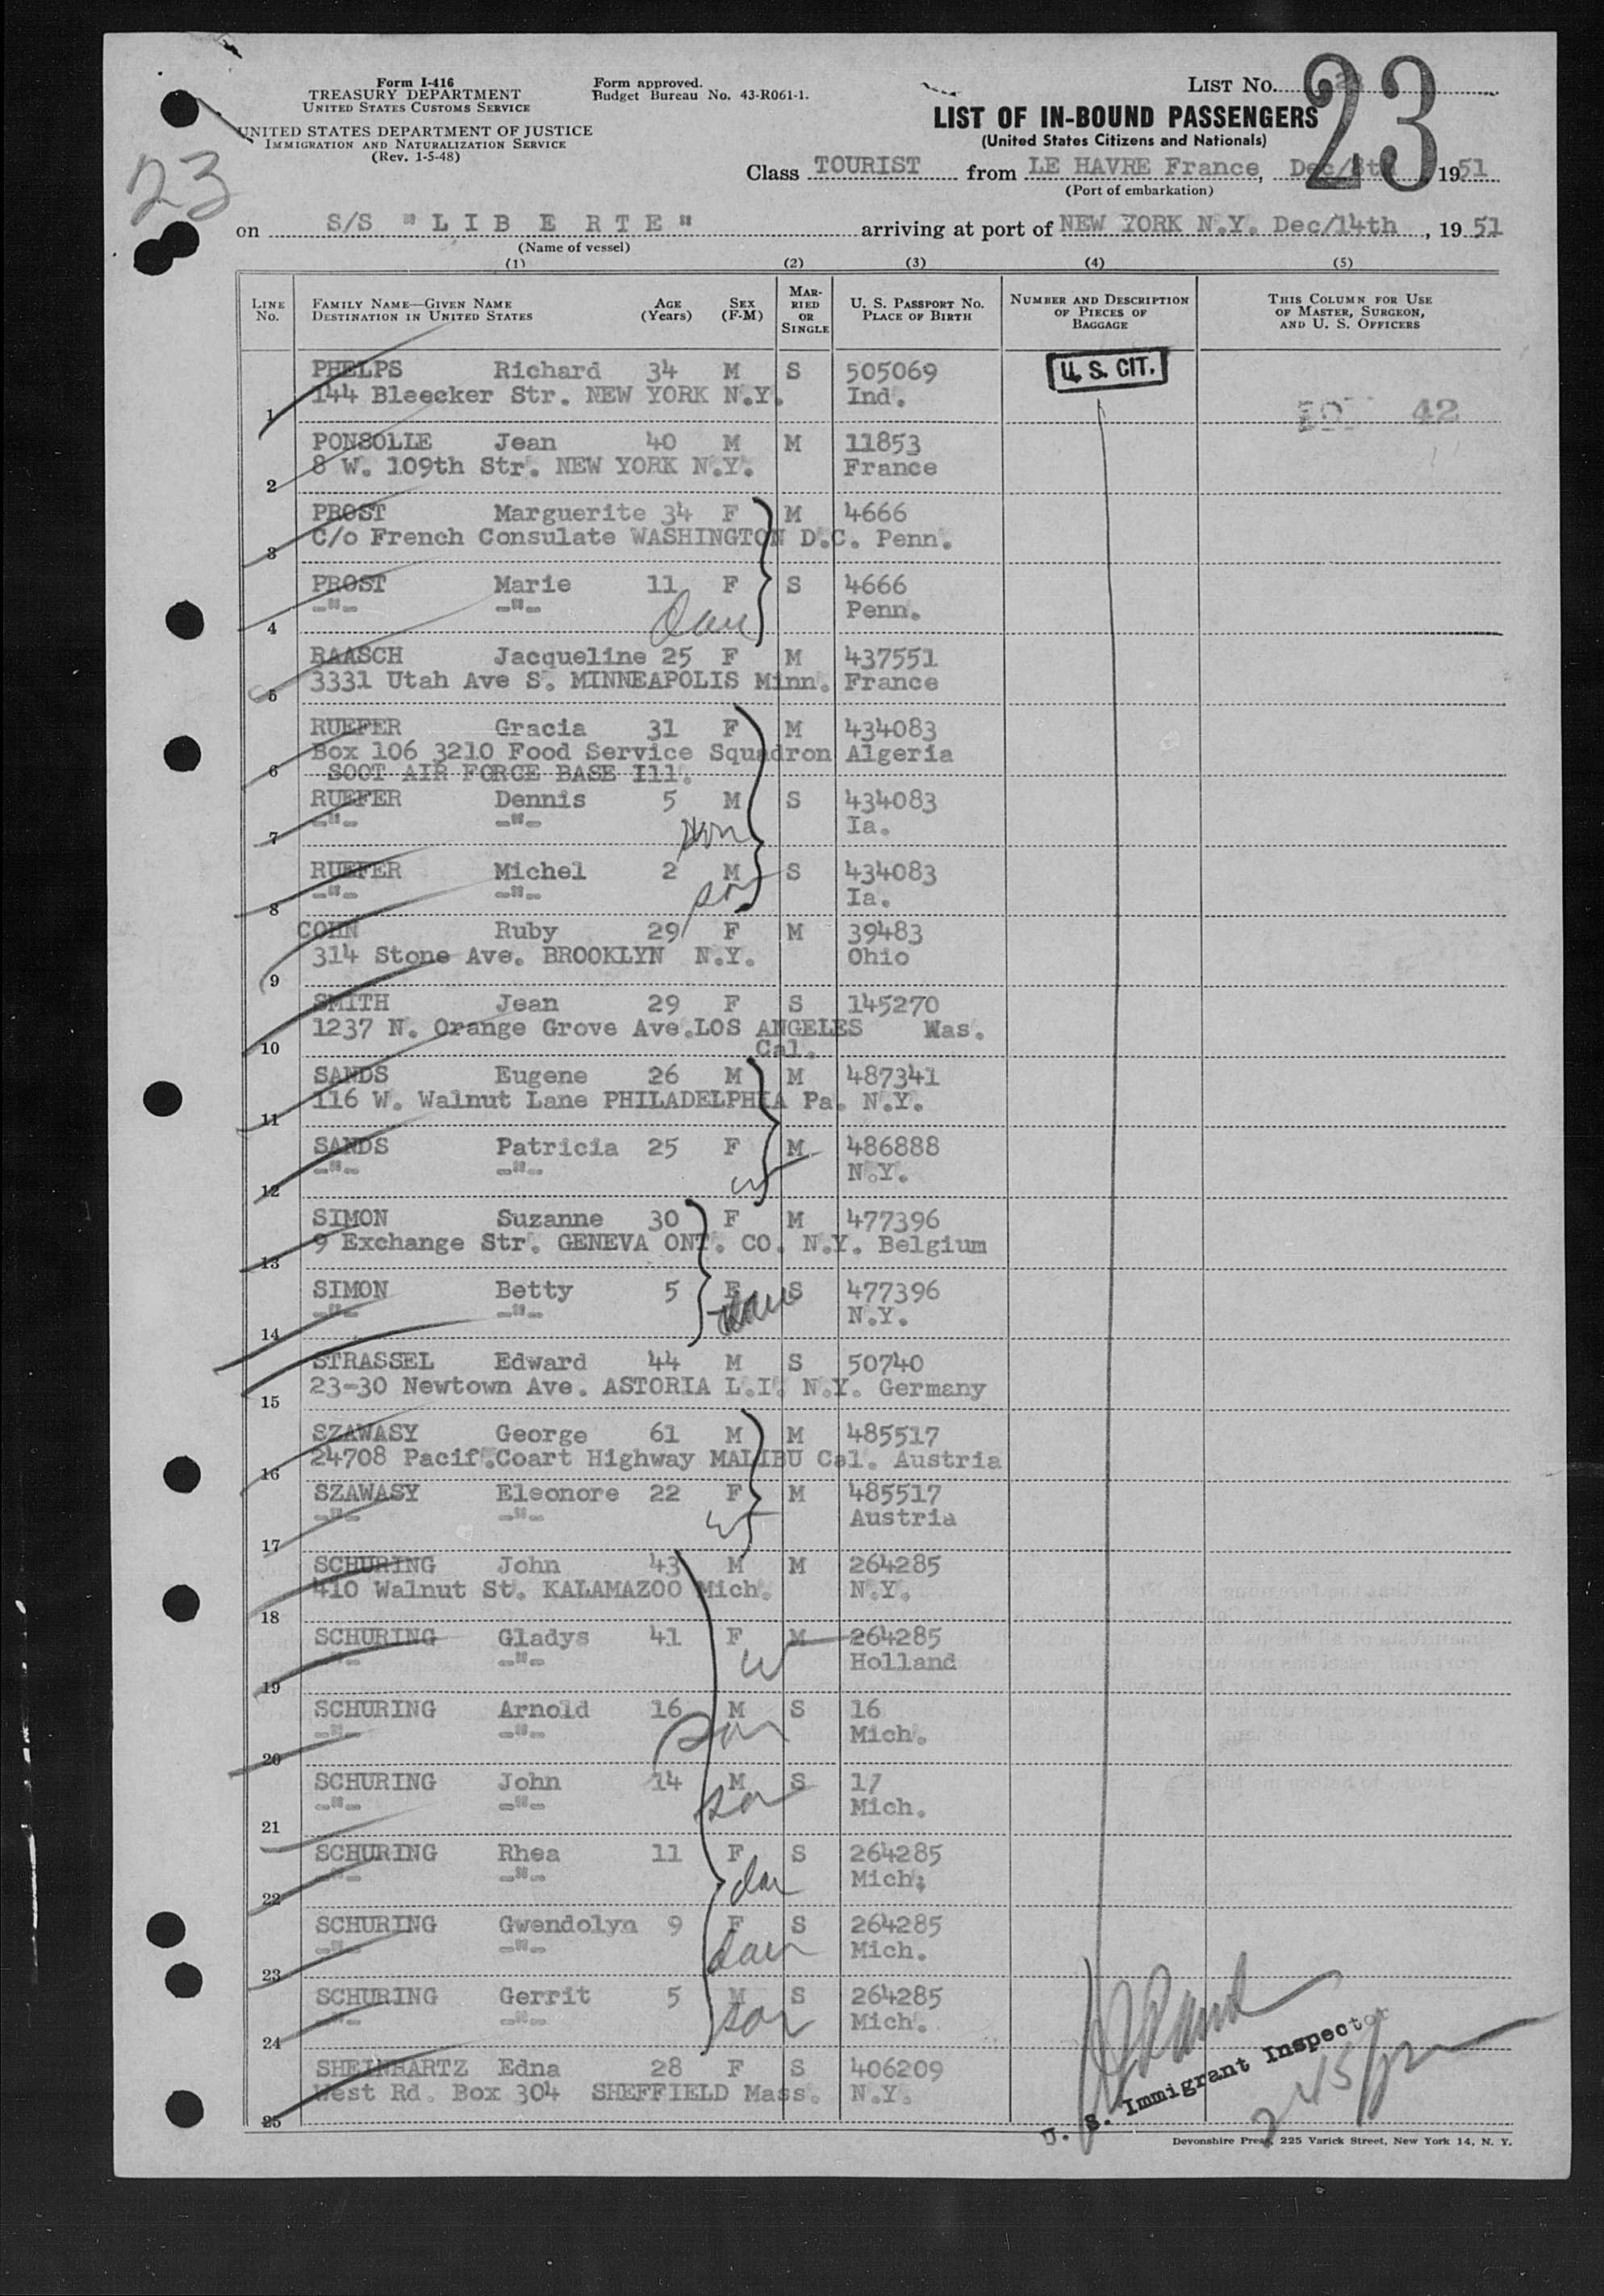 Form I-416
TREASURY DEPARTMENT
UNITED STATES CUSTOMS SERVICE
UNITED STATES DEPARTMENT OF JUSTICE
IMMIGRATION AND NATURALIZATION SERVICE
(Rev. 1-5-48)
Form approved.
Budget Bureau No. 43-R061-1.
LIST No.
23
23
LIST OF IN-BOUND PASSENGERS
(United States Citizens and Nationals)
Class TOURIST from LE HAVRE France, Dec/8th 1951
(Port of embarkation)
on S/S "LIBERTE" arriving at port of NEW YORK N.Y. Dec/14th, 1951
(Name of vessel)
(1) (2) (3) (4) (5)
LINE No. FAMILY NAME—GIVEN NAME DESTINATION IN UNITED STATES AGE (Years) SEX (F-M) MARRIED OR SINGLE U. S. PASSPORT No. PLACE OF BIRTH NUMBER AND DESCRIPTION OF PIECES OF BAGGAGE THIS COLUMN FOR USE OF MASTER, SURGEON, AND U. S. OFFICERS
PHELPS Richard 34 M S 505069 U. S. CIT.
1 144 Bleecker Str. NEW YORK N.Y. Ind. 42
PONSOLLE Jean 40 M M 11853
2 8 W. 109th Str. NEW YORK N.Y. France
PROST Marguerite 34 F M 4666
3 C/o French Consulate WASHINGTON D.C. Penn.
PROST Marie 11 F S 4666
4 -"- -"- dau Penn.
RAASCH Jacqueline 25 F M 437551
5 3331 Utah Ave S. MINNEAPOLIS Minn. France
RUEFER Gracia 31 F M 434083
Box 106 3210 Food Service Squadron Algeria
6 SOOT AIR FORCE BASE Ill.
RUEFER Dennis 5 M S 434083
7 -"- -"- son Ia.
RUEFER Michel 2 M S 434083
8 -"- -"- son Ia.
COHN Ruby 29 F M 39483
9 314 Stone Ave. BROOKLYN N.Y. Ohio
SMITH Jean 29 F S 145270
1237 N. Orange Grove Ave.LOS ANGELES Was.
10 Cal.
SANDS Eugene 26 M M 487341
11 116 W. Walnut Lane PHILADELPHIA Pa. N.Y.
SANDS Patricia 25 F M 486888
12 -"- -"- w N.Y.
SIMON Suzanne 30 F M 477396
13 9 Exchange Str. GENEVA ONT. CO. N.Y. Belgium
SIMON Betty 5 F S 477396
14 -"- -"- dau N.Y.
STRASSEL Edward 44 M S 50740
15 23-30 Newtown Ave. ASTORIA L.I. N.Y. Germany
SZAWASY George 61 M M 485517
16 24708 Pacif.Coart Highway MALIBU Cal. Austria
SZAWASY Eleonore 22 F M 485517
17 -"- -"- w Austria
SCHURING John 43 M M 264285
18 410 Walnut St. KALAMAZOO Mich. N.Y.
SCHURING Gladys 41 F M 264285
19 -"- -"- w Holland
SCHURING Arnold 16 M S 16
20 -"- -"- son Mich.
SCHURING John 14 M S 17
21 -"- -"- son Mich.
SCHURING Rhea 11 F S 264285
22 -"- -"- dau Mich;
SCHURING Gwendolyn 9 F S 264285
23 -"- -"- dau Mich.
SCHURING Gerrit 5 M S 264285
24 -"- -"- son Mich.
SHEINHARTZ Edna 28 F S 406209
25 West Rd. Box 304 SHEFFIELD Mass. N.Y.
U. S. Immigrant Inspector
Devonshire Press, 225 Varick Street, New York 14, N. Y.